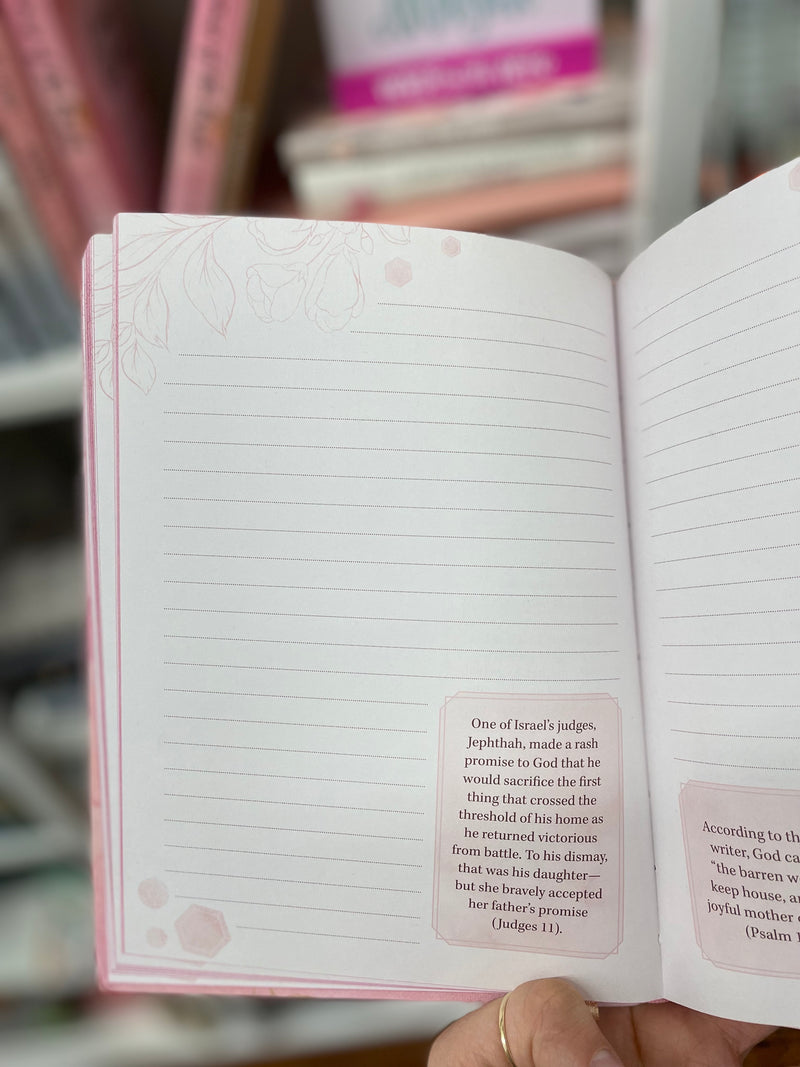 One of Israel's judges,
Jephthah, made a rash
promise to God that he
would sacrifice the first
thing that crossed the
threshold of his home as
he returned victorious
from battle. To his dismay,
that was his daughter—
but she bravely accepted
her father's promise
(Judges 11).
According to th
writer, God ca
"the barren w
keep house, a
joyful mother
(Psalm 1